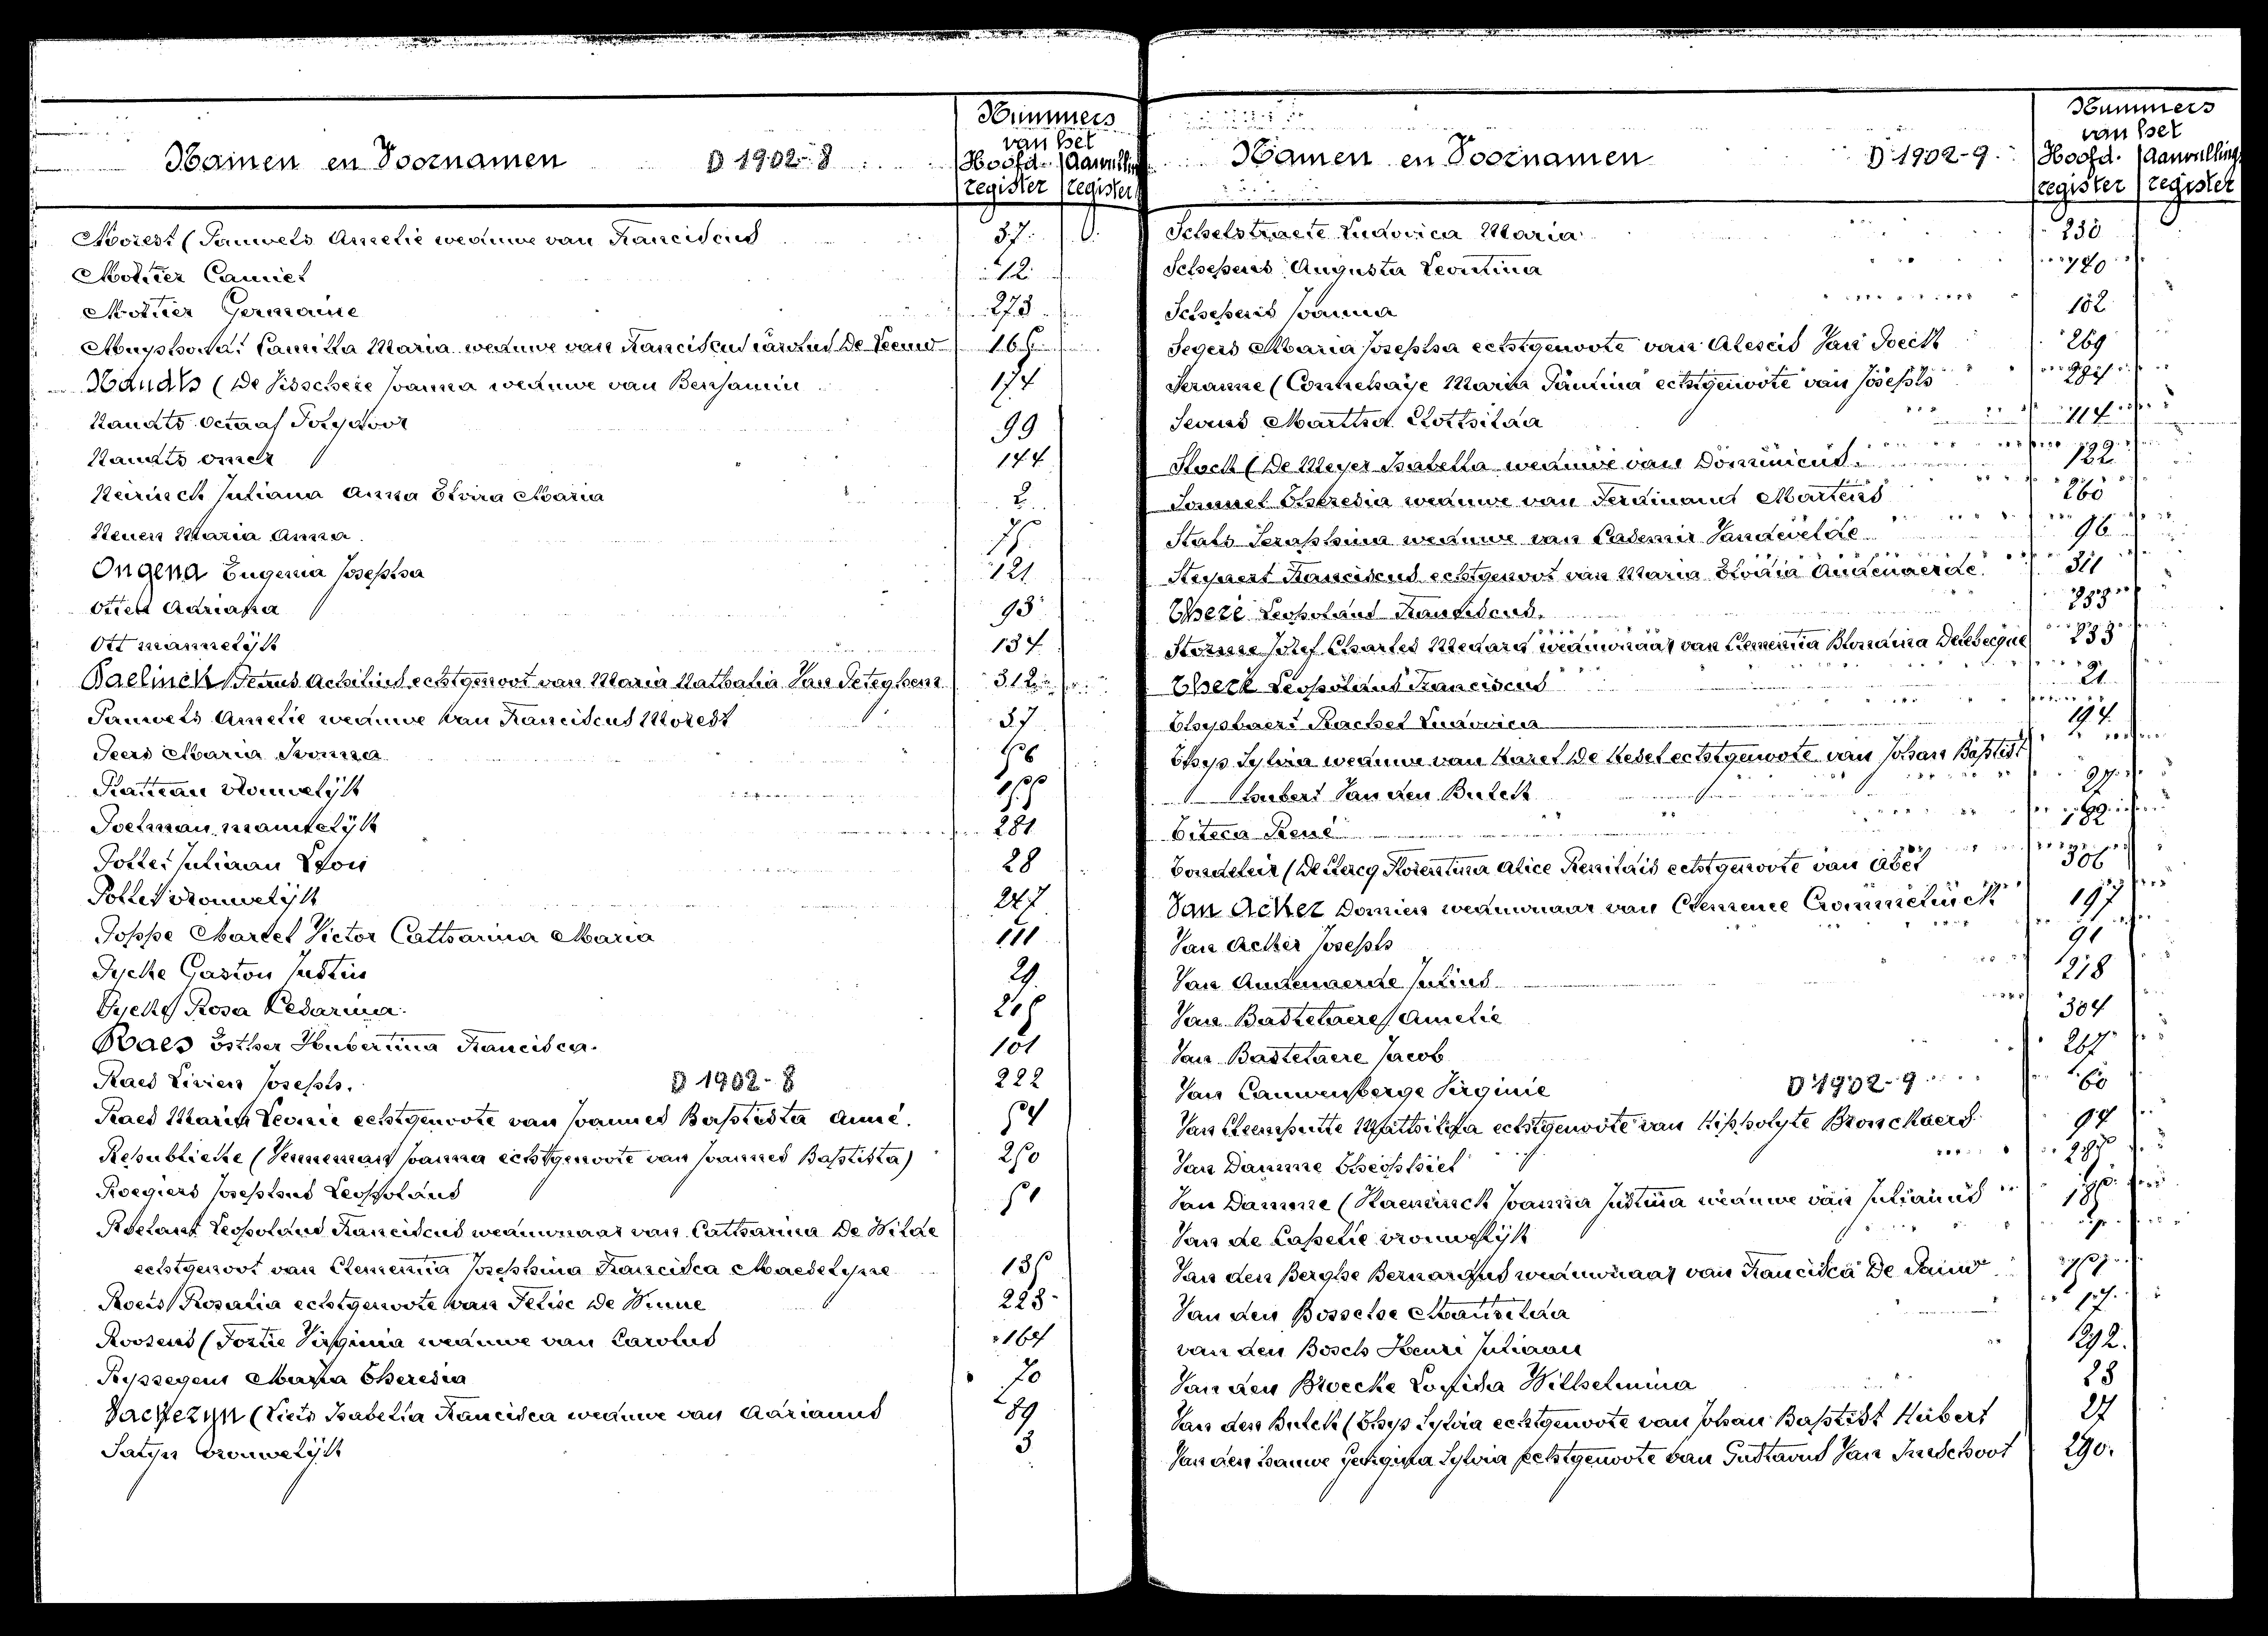 Namen en Voornamen D 1902-8 Nummers
van het
Hoofd- Aanvulling
register register
Morest (Pauwels Amelie weduwe van Franciscus 37
Mottier Camiel 12
Mottier Germaine 273
Muyshondt Camilla Maria weduwe van Franciscus Carolus De Leeuw 165
Nauats (De Visschere Joanna weduwe van Benjamin 174
Nauats Octaaf Polydoor 99
Nauats Omer 144
Neirinck Juliana Anna Elvira Maria 2
Neuen Maria Anna 75
Ongena Eugenia Josepha 121
Otten Adriana 93
Ott mannelijk 134
Paelinck Petrus Achilius echtgenoot van Maria Nathalia Van Peteghem 312
Pauwels Amelie weduwe van Franciscus Morest 37
Peers Maria Ivonna 56
Platteau vrouwelijk
Poelman mannelijk 281
Pollet Juliaan Leon 28
Pollet vrouwelijk 247
Poppe Marcel Victor Catharina Maria 111
Pycke Gaston Justin 29
Pycke Rosa Cesarina
Raes Esther Hubertina Francisca 101
Raes Livien Joseph. D 1902-8 222
Raes Maria Leonie echtgenoote van Joannes Baptista Anné. 54
Republieke (Venneman Joanna echtgenoote van Joannes Baptista) 250
Roegiers Josephus Leopoldus 51
Roelant Leopoldus Franciscus weduwnaar van Catharina De Wilde
echtgenoot van Clementia Josephina Francisca Maeselyne 135
Roels Rosalia echtgenoote van Felix De Winne 223
Roosens (Fortie Virginia weduwe van Carolus 164
Ryssegem Maria Theresia 70
Sacrezyn (Viets Isabella Francisca weduwe van Adrianus 89
Satyn vrouwelijk 3
Namen en Voornamen D 1902-9. Nummers
van het
Hoofd- Aanvulling
register register
Schelstraete Ludovica Maria 230
Schepens Augusta Leontina
Schepens Joanna 102
Segers Maria Josepha echtgenoote van Alexis Van Poeck 269
Seranne (Connehaye Maria Paulina echtgenoote van Joseph
Sevens Martha Clothilda 114
Slock (De Meyer Isabella weduwe van Dominicus. 122
Sommel Theresia weduwe van Ferdinand Martens 260
Stals Seraphina weduwe van Casemir Vandevelde 96
Steyaert Franciscus echtgenoot van Maria Elodia Audenaerde 311
Theré Leopoldus Franciscus.
Storme Jozef Charles Medard weduwnaar van Clementia Blondina Delebecque 233
Theré Leopoldus Franciscus 21
Thysbaert Rachel Ludovica 194
Thys Sylvia weduwe van Karel De Kesel echtgenoote van Johan Baptist
Hubert Van den Bulck 27
Titeca René
Tondeleir (De Clercq Florentina Alice Renildis echtgenoote van Abel 306
Van Acker Domien weduwnaar van Clemence Crommelinck 197
Van Acker Joseph 91
Van Audenaerde Julius 218
Van Bastelaere Amelie 304
Van Bastelaere Jacob 267
Van Cauwenberge Virginie D 1902-9 60
Van Cleemputte Mathilda echtgenoote van Hippolyte Bronckaers 94
Van Damme Theophiel
Van Damme (Haeninck Joanna Justina weduwe van Julianus
Van de Capelle vrouwelijk
Van den Berghe Bernardus weduwnaar van Francisca De Pauw
Van den Bossche Mathilda
van den Bosch Henri Juliaan 292.
Van den Broecke Lovisa Wilhelmina 23
Van den Bulck (Thys Sylvia echtgenoote van Johan Baptist Hubert 27
Van den Hauwe Georgina Sylvia echtgenoote van Gustavus Van Inschoot 290.